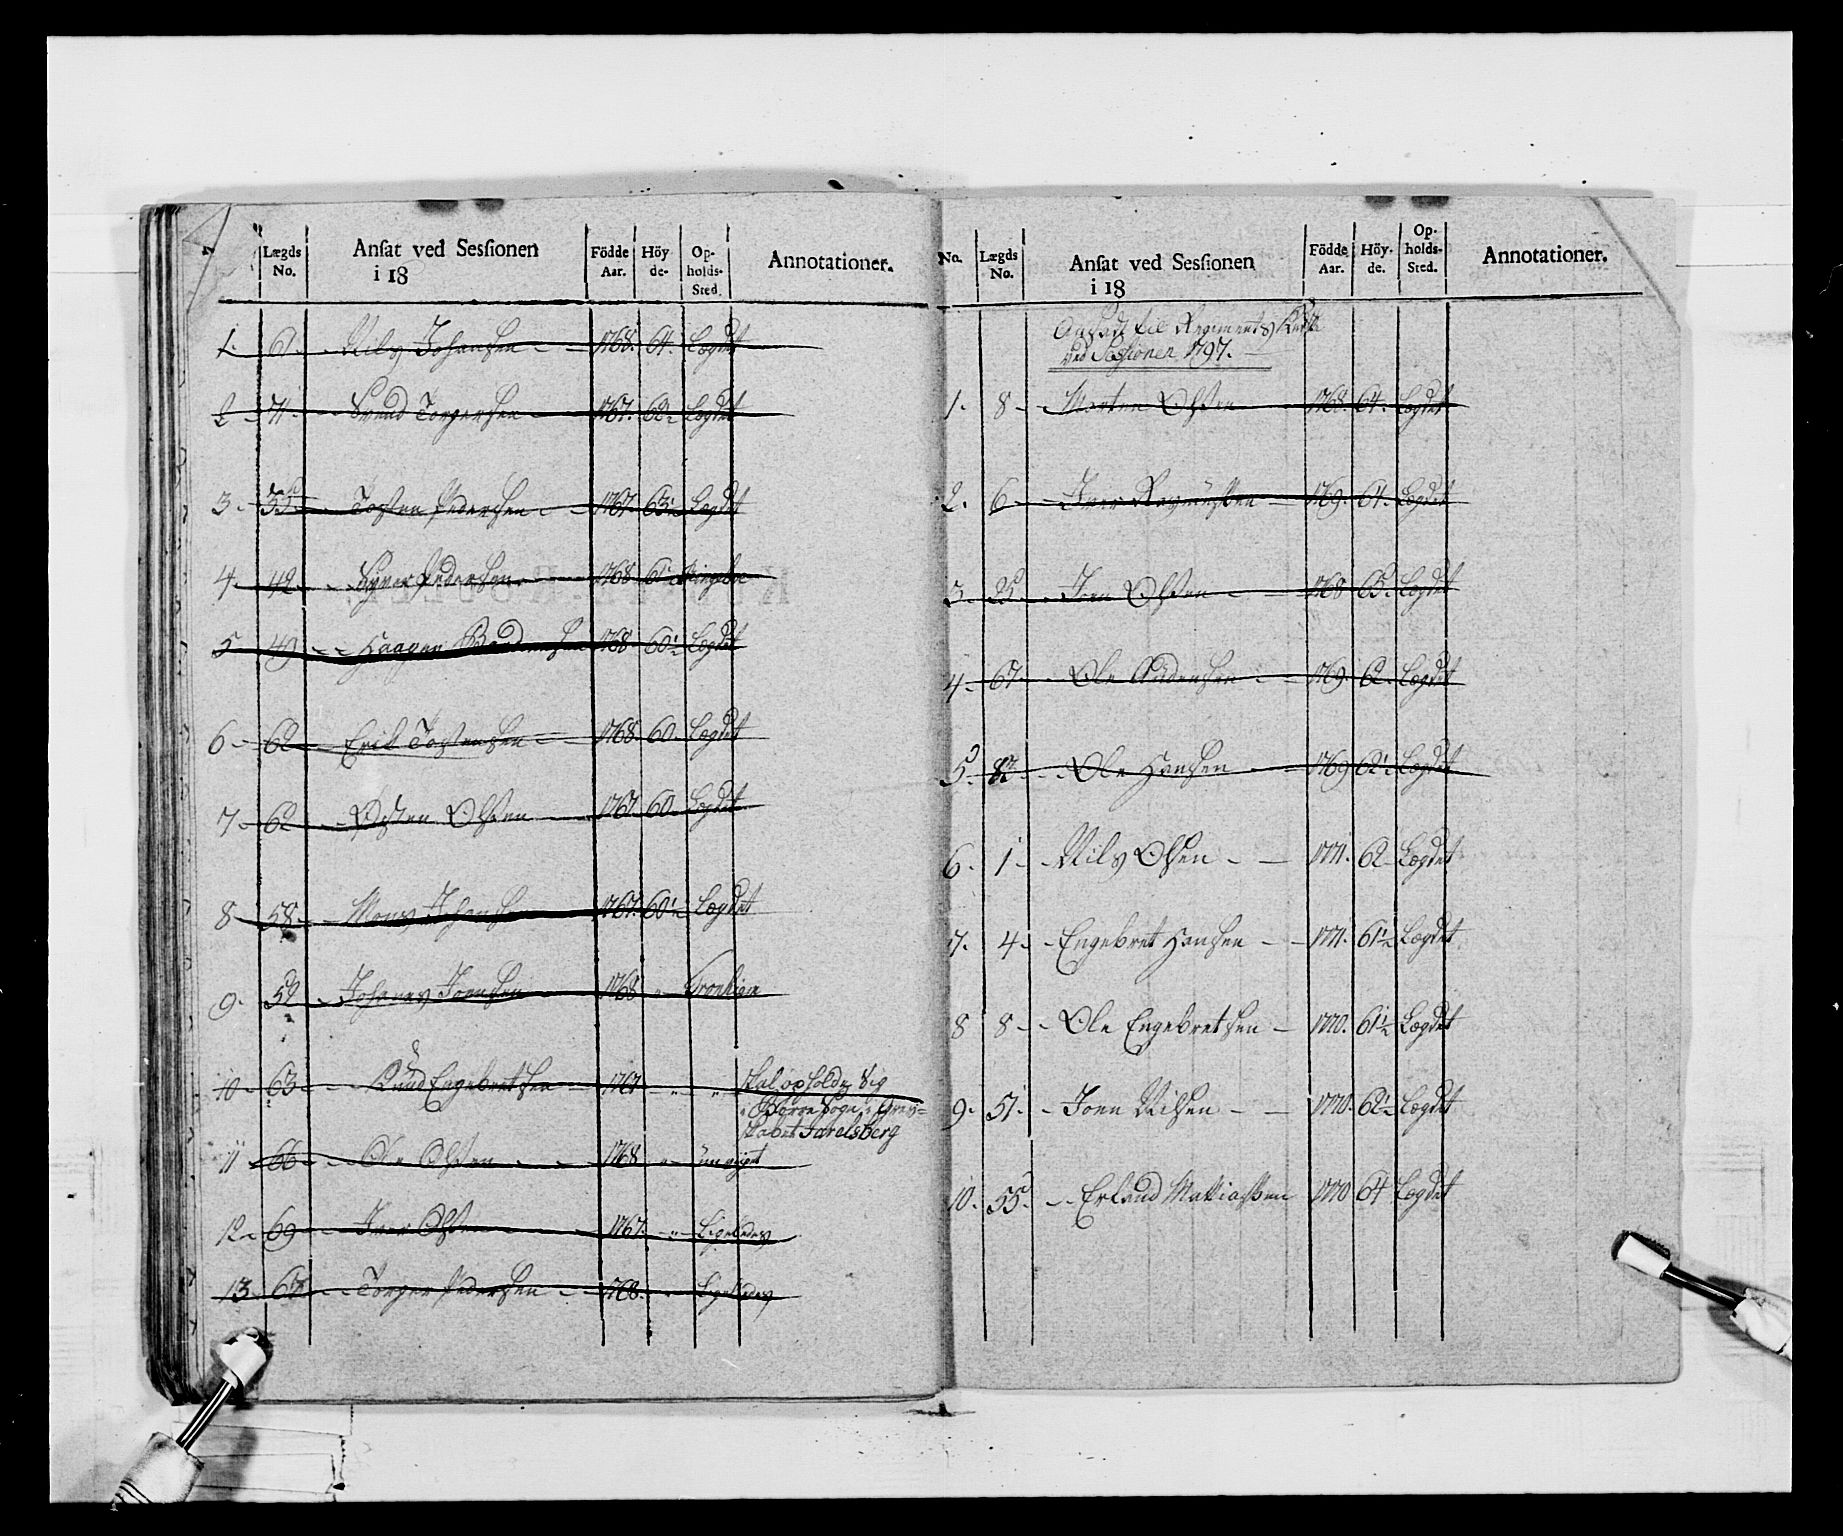 Lægds No. Ansat ved Sessionen i 18 Födde Aar. Höyde. Opholds-Sted. Annotationer.
1. Nils Johansen 1768. 64. Lægdet
2 71. Svend Torgersen 1767. 62 Lægdet
3. Tosten Pedersen 1767. 63½ Lægdet
4. 42. Pedersen 1768 Ringeboe
5 49 Haagen 1768 60½ Lægdet
6 62 Erik Tostensen 1768. 60. Lægdet
7 62 Østen Olsen 1767. 60. Lægdet
8 58. Mons Johansen 1767. 60½ Lægdet
9. 59 Johanes Joensen 1768 " Tronhiem
10 63 Knud Engebretsen 1767 " " skal opholde sig
i Borre Sogn i Grev-
skabet Jarelsberg
11 66 Ole Olsen 1768 " unviist
12 69 Iver Olsen 1767. " Ligeledes
13 67 Torger Pedersen 1768. " Ligeledes
No. Lægds No. Ansat ved Sessionen i 18 Födde Aar. Höyde. Opholds-Sted. Annotationer.
Ansadt til Regiments
ved Sessionen 1797.
1. 8 Morten Olsen 1768. 64. Lægdet
2. 6 Iver Rasmussen 1769. 64. Lægdet
3. 25 Joen Olsen 1768 65. Lægdet
4. 67. Ole Andersen 1769. 62 Lægdet
5. 82 Ole Hansen 1769 62½ Lægdet
6. 1 Nils Olsen 1771. 62 Lægdet
7. 4 Engebret Hansen 1771. 61½ Lægdet
8 8 Ole Engebretsen 1770. 61½ Lægdet
9. 51. Joen Nilsen 1770. 62½ Lægdet
10. 55. Erland Mathiassen 1770 64 Lægdet